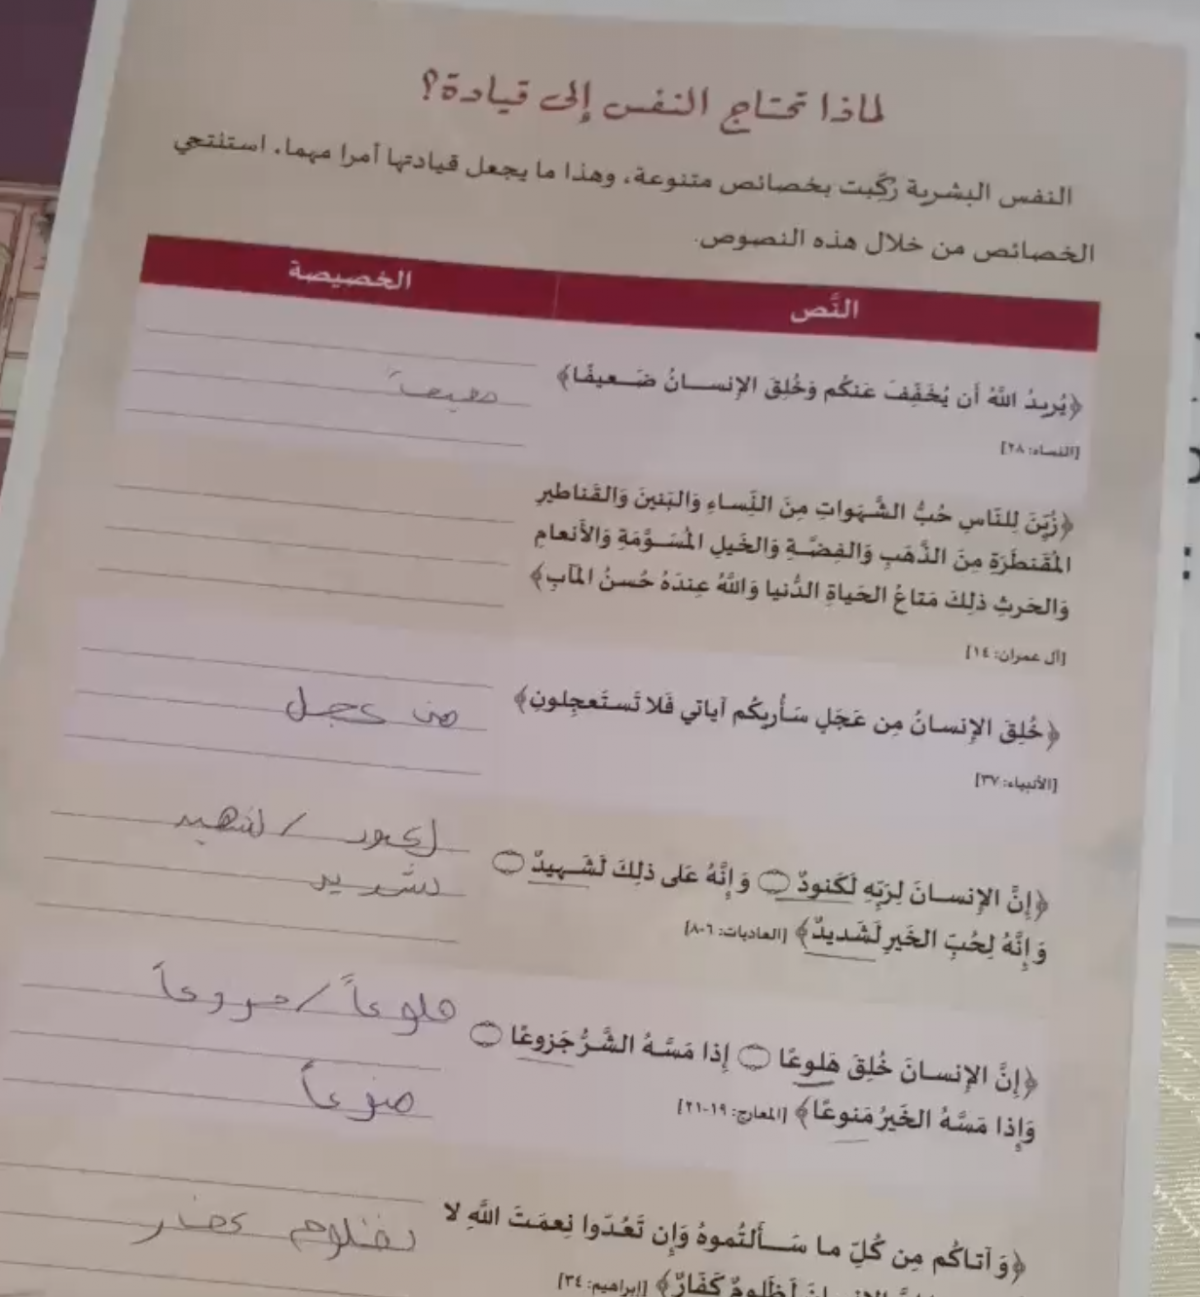 لماذا تحتاج النفس إلى قيادة؟
النفس البشرية رُكِّبت بخصائص متنوعة، وهذا ما يجعل قيادتها أمرا مهما، استنتجي
الخصائص من خلال هذه النصوص.
النَّص
الخصيصة
﴿يُريدُ اللَّهُ أَن يُخَفِّفَ عَنكُم وَخُلِقَ الإِنسـانُ ضَـعيفًا﴾
[النساء: ٢٨]
ضعيفاً
﴿زُيِّنَ لِلنّاسِ حُبُّ الشَّهَواتِ مِنَ النِّساءِ وَالبَنينَ وَالقَناطيرِ
المُقَنطَرَةِ مِنَ الذَّهَبِ وَالفِضَّـةِ وَالخَيلِ المُسَـوَّمَةِ وَالأَنعامِ
وَالحَرثِ ذلِكَ مَتاعُ الحَياةِ الدُّنيا وَاللَّهُ عِندَهُ حُسنُ المَآبِ﴾
[آل عمران: ١٤]
﴿خُلِقَ الإِنسانُ مِن عَجَلٍ سَأُريكُم آياتي فَلا تَستَعجِلونِ﴾
[الأنبياء: ٣٧]
من عجل
﴿إِنَّ الإِنسـانَ لِرَبِّهِ لَكَنودٌ ۝ وَإِنَّهُ عَلى ذلِكَ لَشَـهيدٌ ۝
وَإِنَّهُ لِحُبِّ الخَيرِ لَشَديدٌ﴾ [العاديات: ٦-٨]
لكنود / لشهيد
لشديد
﴿إِنَّ الإِنسـانَ خُلِقَ هَلوعًا ۝ إِذا مَسَّـهُ الشَّـرُّ جَزوعًا ۝
وَإِذا مَسَّهُ الخَيرُ مَنوعًا﴾ [المعارج: ١٩-٢١]
هلوعاً / جزوعاً
منوعاً
﴿وَآتاكُم مِن كُلِّ ما سَـأَلتُموهُ وَإِن تَعُدّوا نِعمَتَ اللَّهِ لا
الإِنسانَ لَظَلومٌ كَفّارٌ﴾ [إبراهيم: ٣٤]
لظلوم كفار